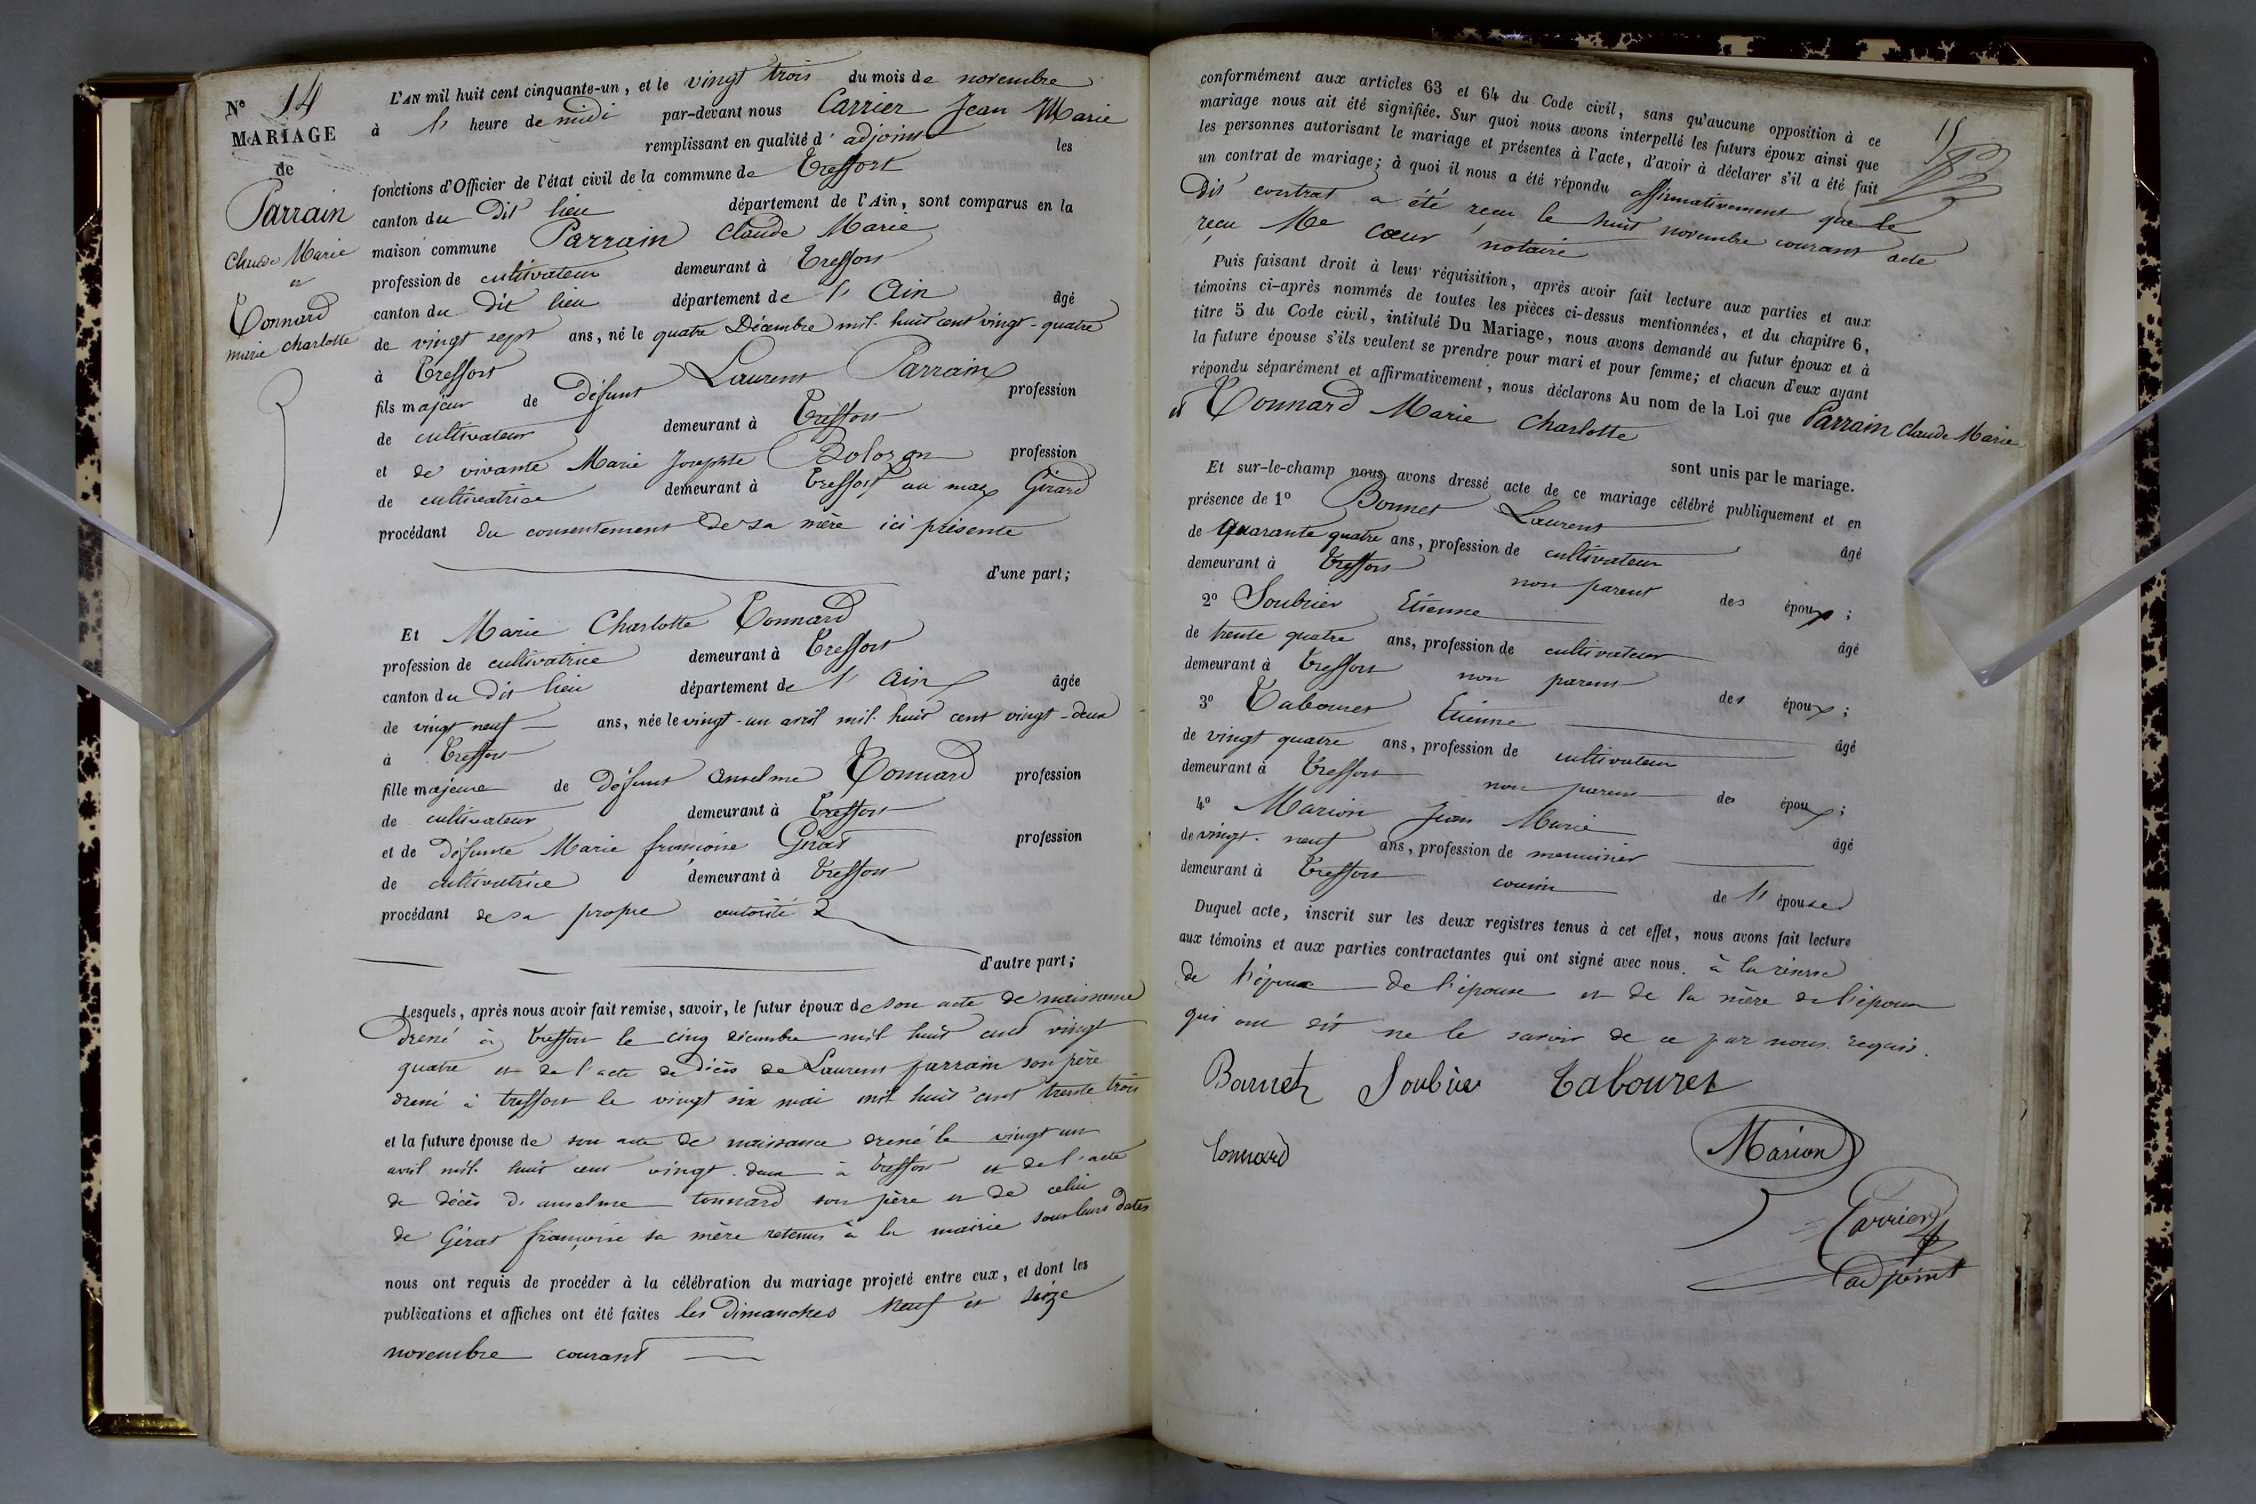 Nº 14
MARIAGE
de
Parrain
Claude Marie
et
Tonnard
marie charlotte
L'AN mil huit cent cinquante-un, et le vingt trois du mois de novembre
à l' heure de midi par-devant nous Carrier Jean Marie
remplissant en qualité d' adjoint les
fonctions d'Officier de l'état civil de la commune de Treffort
canton du dit lieu département de l'Ain, sont comparus en la
maison commune Parrain Claude Marie
profession de cultivateur demeurant à Treffort
canton du dit lieu département de l' Ain âgé
de vingt sept ans, né le quatre Décembre mil huit cent vingt-quatre
à Treffort
fils majeur de défunt Laurent Parrain profession
de cultivateur demeurant à Treffort
et de vivante Marie Josephte profession
de cultivatrice demeurant à Treffort au mas Girard
procédant du consentement de sa mère ici présente
d'une part;
Et Marie Charlotte Tonnard
profession de cultivatrice demeurant à Treffort
canton du dit lieu département de l' Ain âgée
de vingt neuf ans, née le vingt-un avril mil huit cent vingt-deux
à Treffort
fille majeure de défunt anselme Tonnard profession
de cultivateur demeurant à Treffort
et de défunte Marie françoise Gérat profession
de cultivatrice demeurant à Treffort
procédant de sa propre autorité
d'autre part;
Lesquels, après nous avoir fait remise, savoir, le futur époux de son acte de naissance
dressé à treffort le cinq décembre mil huit cent vingt
quatre et de l'acte de décès de Laurent parrain son père
dressé à treffort le vingt six mai mil huit cent trente trois
et la future épouse de son acte de naissance dressé le vingt un
avril mil huit cent vingt deux à treffort et de l'acte
de décès d'anselme tonnard son père et de celui
de Gérat françoise sa mère retenus à la mairie sous leurs dates
nous ont requis de procéder à la célébration du mariage projeté entre eux, et dont les
publications et affiches ont été faites les dimanches neuf et seize
novembre courant
15
conformément aux articles 63 et 64 du Code civil, sans qu'aucune opposition à ce
mariage nous ait été signifiée. Sur quoi nous avons interpellé les futurs époux ainsi que
les personnes autorisant le mariage et présentes à l'acte, d'avoir à déclarer s'il a été fait
un contrat de mariage; à quoi il nous a été répondu affirmativement que le
dit contrat a été reçu le huit novembre courant acte
reçu Me Cœur notaire
Puis faisant droit à leur réquisition, après avoir fait lecture aux parties et aux
témoins ci-après nommés de toutes les pièces ci-dessus mentionnées, et du chapitre 6,
titre 5 du Code civil, intitulé Du Mariage, nous avons demandé au futur époux et à
la future épouse s'ils veulent se prendre pour mari et pour femme; et chacun d'eux ayant
répondu séparément et affirmativement, nous déclarons Au nom de la Loi que Parrain Claude Marie
et Tonnard Marie Charlotte
sont unis par le mariage.
Et sur-le-champ nous avons dressé acte de ce mariage célébré publiquement et en
présence de 1º Bonnet Laurent âgé
de quarante quatre ans, profession de cultivateur
demeurant à Treffort non parent des époux;
2º Soubrier Etienne âgé
de trente quatre ans, profession de cultivateur
demeurant à Treffort non parent des époux;
3º Tabouret Etienne âgé
de vingt quatre ans, profession de cultivateur
demeurant à Treffort non parent des époux;
4º Marion Jean Marie âgé
de vingt-neuf ans, profession de menuisier
demeurant à Treffort cousin de l' épouse
Duquel acte, inscrit sur les deux registres tenus à cet effet, nous avons fait lecture
aux témoins et aux parties contractantes qui ont signé avec nous. à la réserve
de l'époux de l'épouse et de la mère de l'époux
qui ont dit ne le savoir de ce par nous requis.
Bonnet Soubrier Tabouret
tonnard Marion
Carrier
adjoint